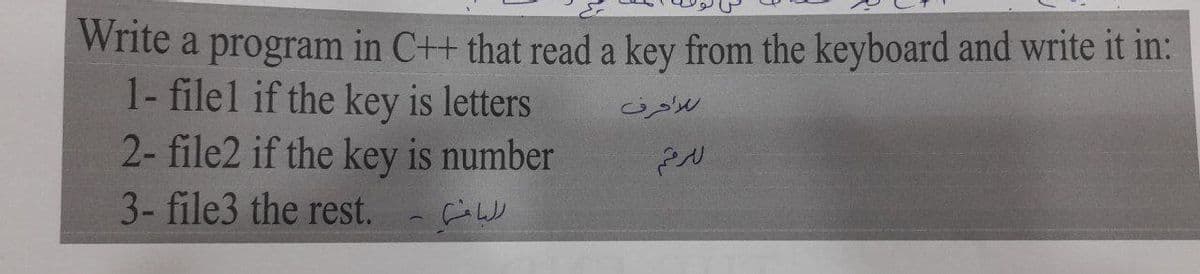 Write a program in C++ that read a key from the keyboard and write it in:
1- file1 if the key is letters للاحرف
2- file2 if the key is number للرقم
3- file3 the rest. - للباقي